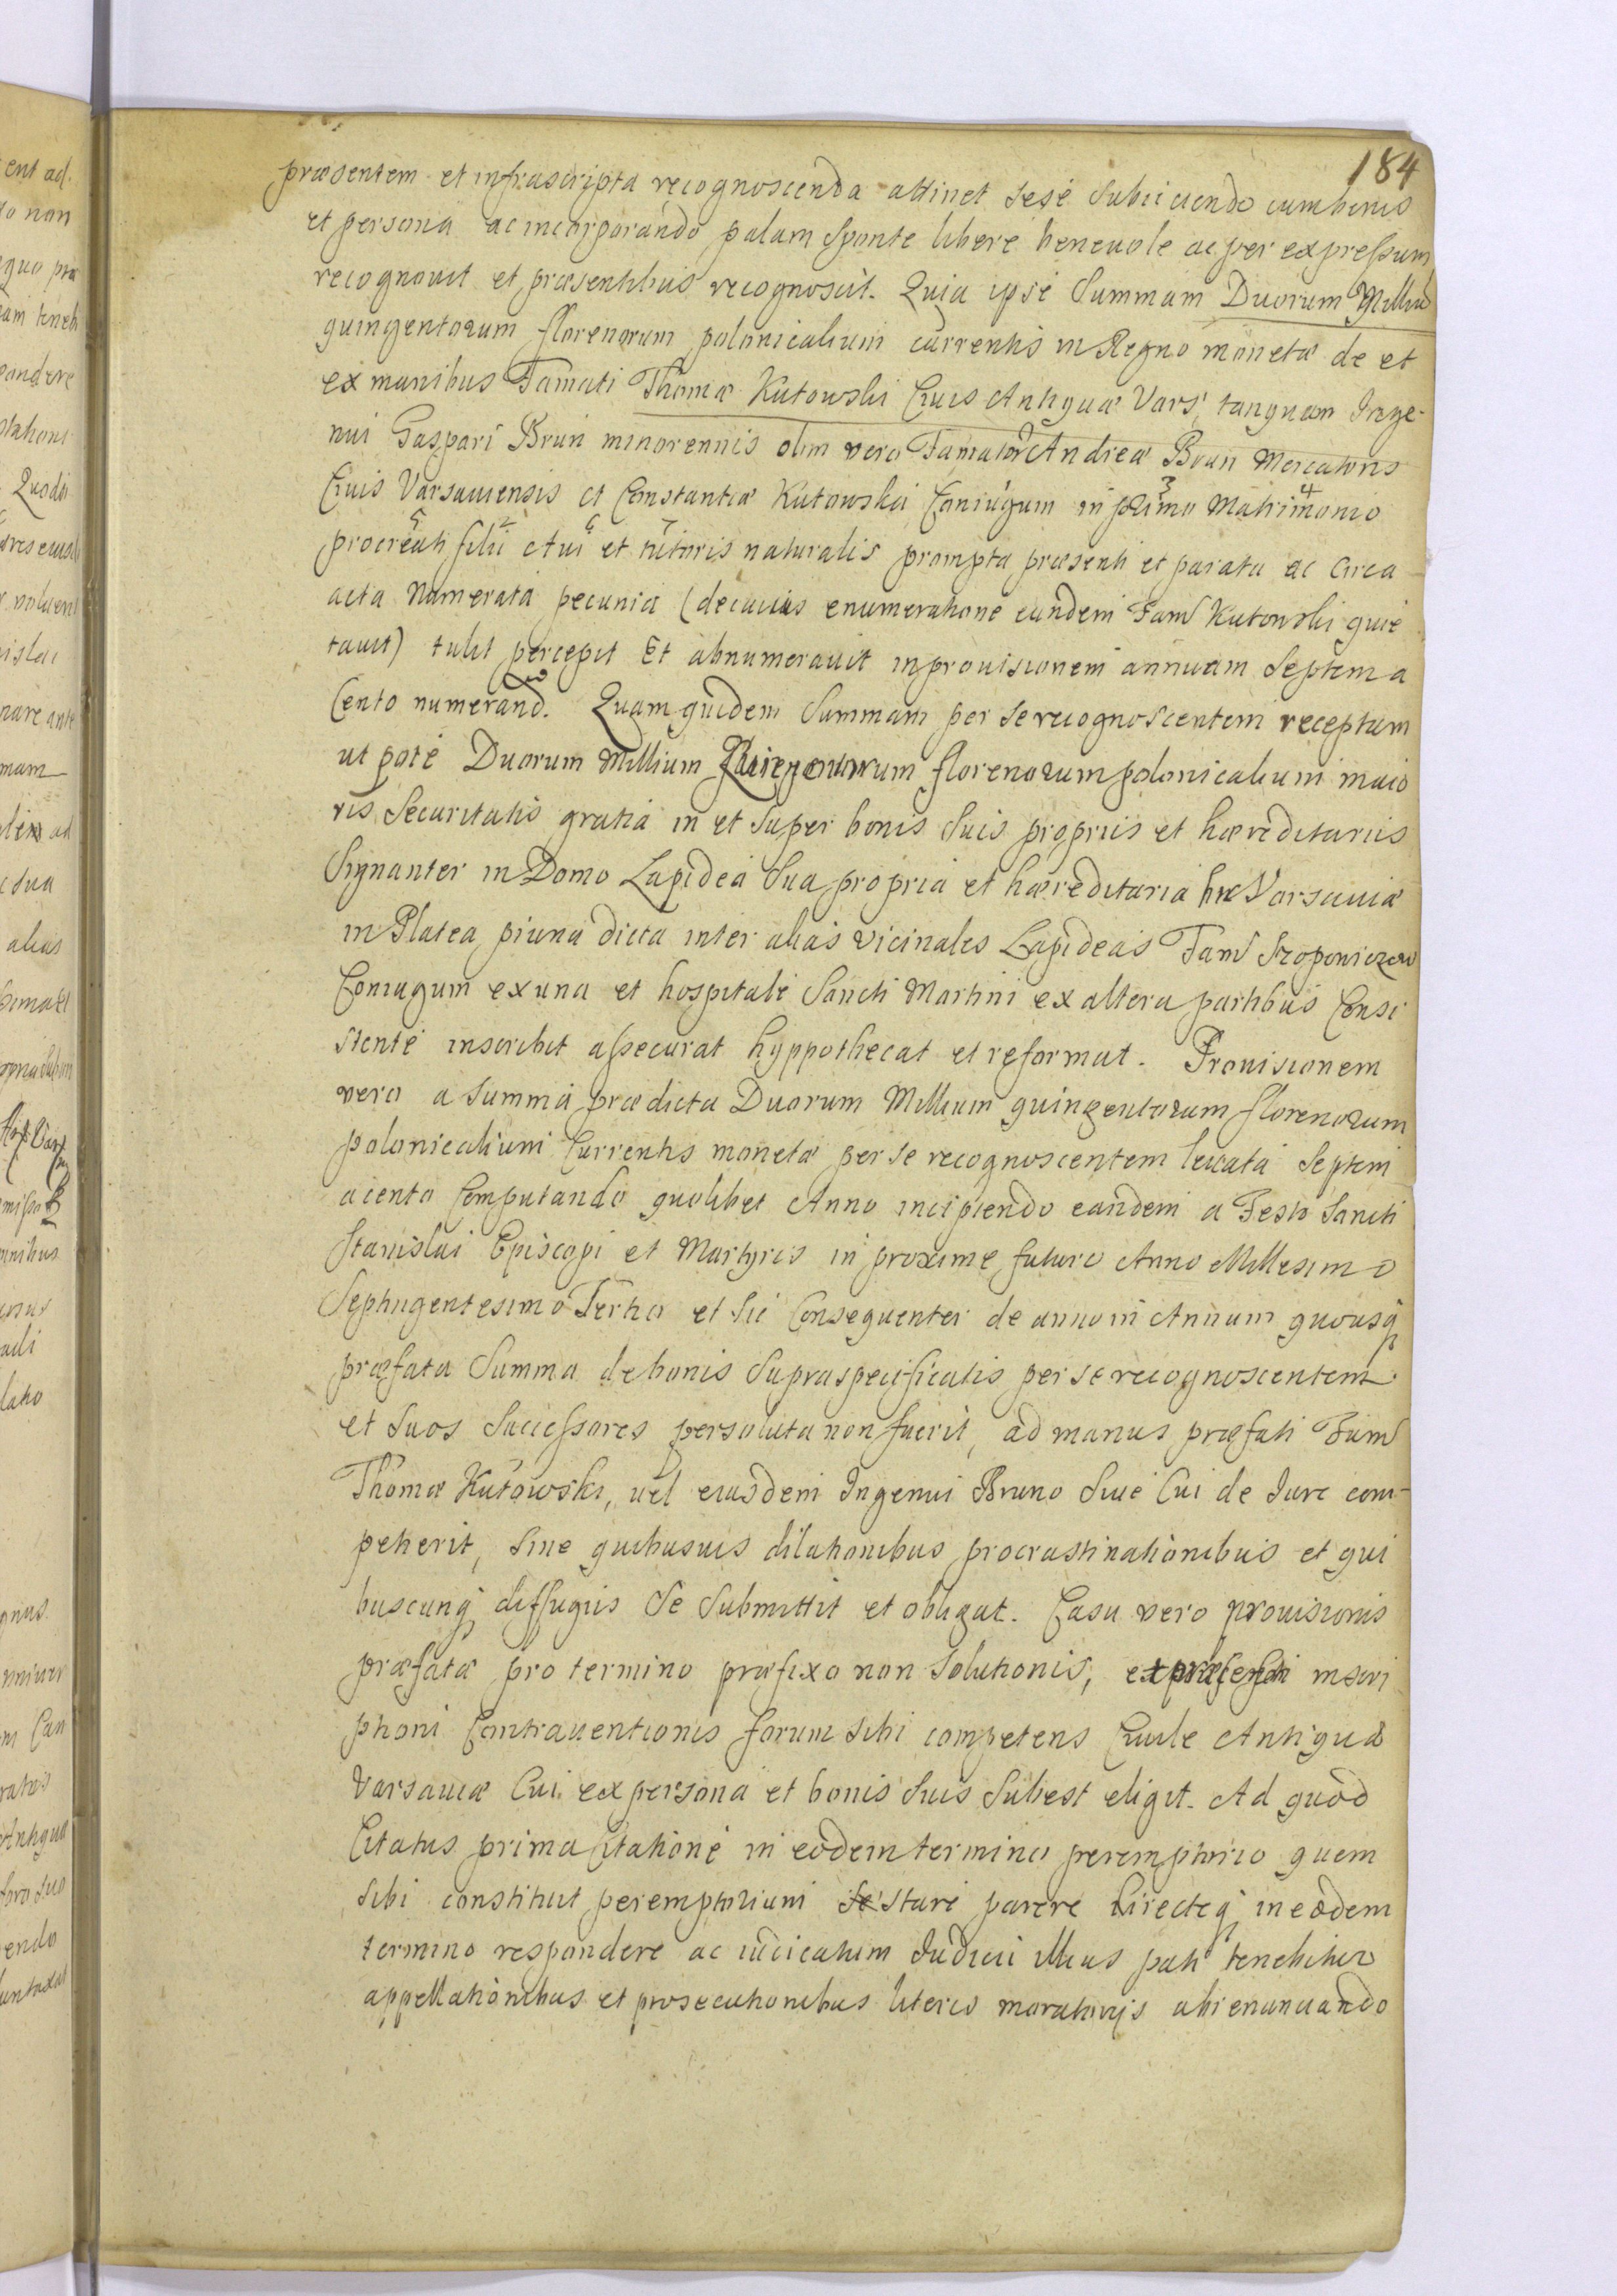 184
præsentem et infrascripta recognoscenda attinet sesé subiiciendo cum bonis
et persona ac incorporando palam sponte liberé benevole ac per expressum
recognovit et præsentibus recognoscit. Quia ipsé Summam Duorum Milliũ
quingentorum florenorum polonicalium currentis in Regno monetæ de et
ex manibus Famati Thomæ Kutowski Civis Antiquæ Vars, tanquam Inge-
nui Gaspari Brun minorennis olim vero Famator Andreæ Brun Mercatoris
Civis Varsaviensis et Constantiæ Kutowska Coniugum in primo 3 Matrimonio 4
procreati 5 filii 2 Avi 6 et tutoris 7 naturalis prompta præsenti et parata ac circa
acta numerata pecunia (de cuius enumeratione eundem Fam Kutowski quié
tavit) tulit percepit Et abnumeravit in provisionem annuam Septem a
Cento numerand. Quam quidem Summam per se recognoscentem receptam
ut poté Duorum Millium Quingentorum florenorum polonicalium maio
ris Securitatis gratiá in et super bonis suis propriis et hæreditariis
Signanter in Domo Lapideá Sua propria et hæreditaria hic Varsaviæ
in Platea piwna dicta inter alias vicinales Lapideas Fam
Coniugum ex una et hospitale Sancti Martini ex altera partibus Consi
stenté inscribit assecurat hyppothecat et reformat. Provisionem
vero a Summa prædicta Duorum Millium quingentorum florenorum
polonicalium Currentis monetæ per se recognoscentem levata Septem
a cento Computando quolibet Anno incipiendo eandem a Festo Sancti
Stanislai Episcopi et Martyris in proxime futuro Anno Millesimo
Septingentesimo Tertio et sic Consequenter de anno in Annum quousq
præfata Summa de bonis Supraspecificatis per se recognoscentem
et suos Successores persoluta non fuerit, ad manus præfati Fam
Thomæ Kutowski, vel eiusdem Ingenui Bruno Sive Cui de Jure com-
petierit, sine quibusvis dilationibus procrastinationibus et qui
buscunq diffugiis Se Submittit et obligat. Casu vero provisionis
præfatæ pro termino præfixo non Solutionis, et præsenti inscri
ptioni Contraventionis forum sibi competens Civile Antiquæ
Varsaviæ Cui ex persona et bonis suis Subest eligit. Ad quod
Citatus prima Citatione in eodem termino peremptorio quem
sibi constituit peremptorium se stare parere directeq in eodem
termino respondere ac iudicatum Judicii illius pati tenebitur
appellationibus et prosecutionibus literis moratoriis